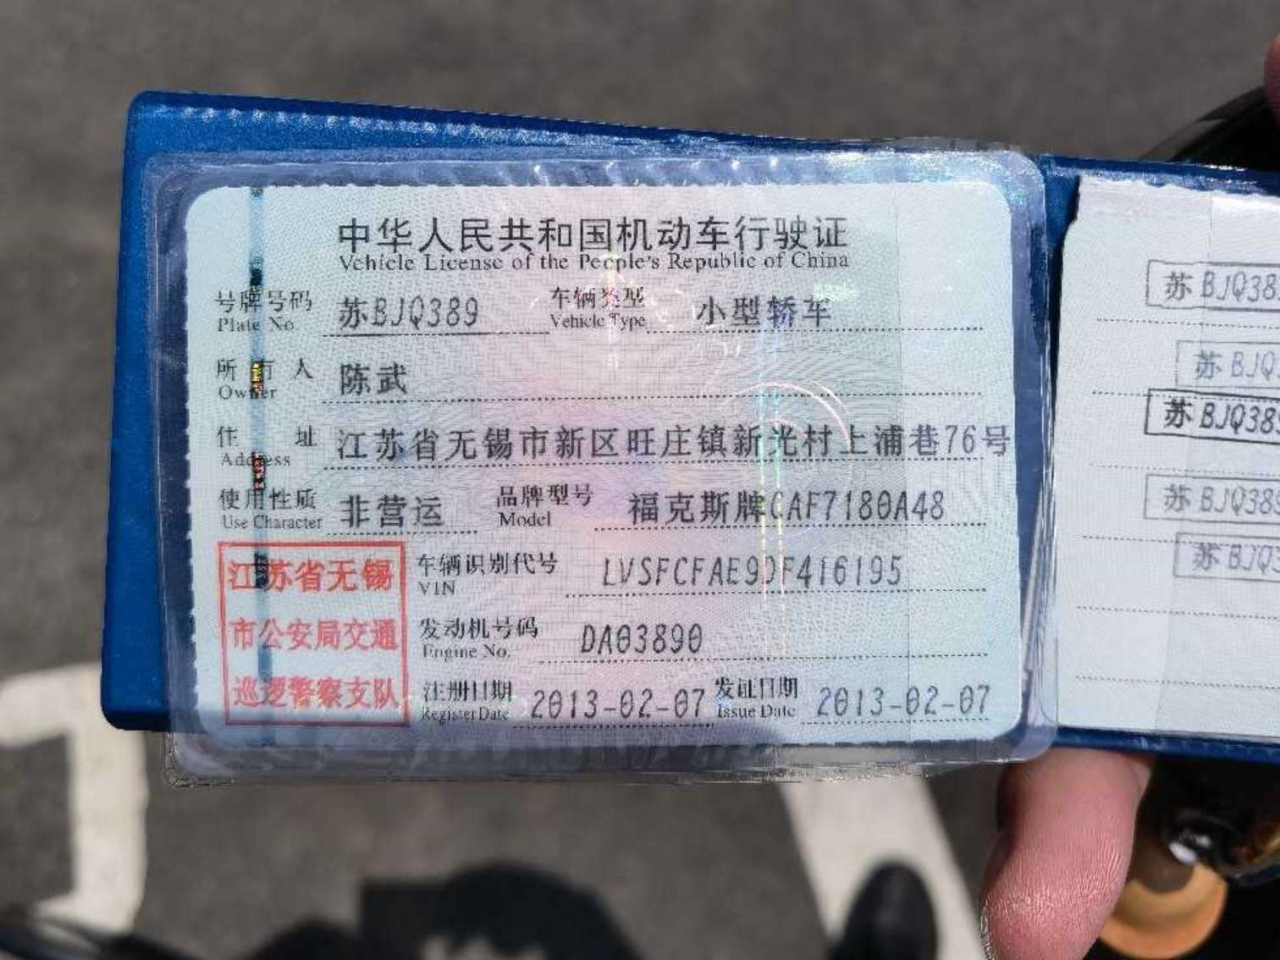 中华人民共和国机动车行驶证
Vehicle License of the People's Republic of China
号牌号码 苏BJQ389 车辆类型 小型轿车
Plate No. Vehicle Type
所有人 陈武
Owner
住址 江苏省无锡市新区旺庄镇新光村上浦巷76号
Address
使用性质 非营运 品牌型号 福克斯牌CAF7180A48
Use Character Model
江苏省无锡
市公安局交通
巡逻警察支队
车辆识别代号 LVSFCFAE9DF416195
VIN
发动机号码 DA03890
Engine No.
注册日期 2013-02-07 发证日期 2013-02-07
Register Date Issue Date
苏BJQ38
苏BJQ
苏BJQ38
苏BJQ38
苏BJQ